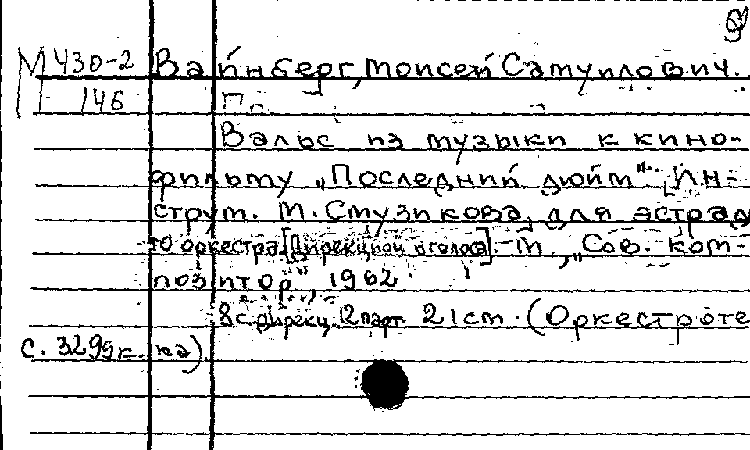 М 430-2 Вайнберг, Моисей Самуилович.
146
Вальс из музыки к кино-
фильму „Последний дюйм". Ин-
струм. М. Смузикова, для эстрад
го оркестра. [Дирекцион и голоса] - М., „Сов. ком-
позитор", 1962
8 с. дирекц. 2 парт 21 см. (Оркестроте
с. 3299к. ка).